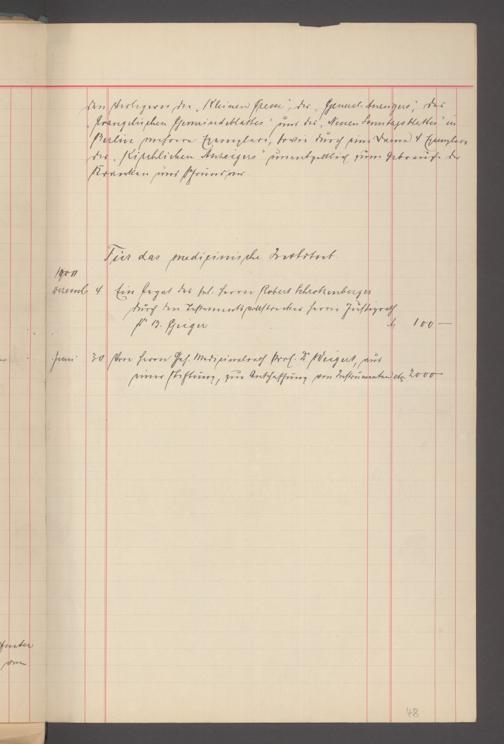 den Verlegern der „Kleinen Presse“, des „General-Anzeigers“, des
Evangelischen Gemeindeblattes und des „Neuen Sonntagsblattes“ in
Berlin mehrere Exemplare, sowie durch eine Dame 4 Exemplare
des „Kirchlichen Anzeigers“ unentgeltlich zum Gebrauch der
Kranken und
Für das medizinische Institut.
1900
Dezemb. 4 Ein Legat des sel. Herrn Robert
durch den Testamentsvollstrecker Herrn Justizrath
Dr B. Geiger M 100 —
Juni 20 Von Herrn Geh. Medizinalrath Prof. Dr Weigert, aus
einer Stiftung, zur Anschaffung von Instrumenten etc. 2000 —
48